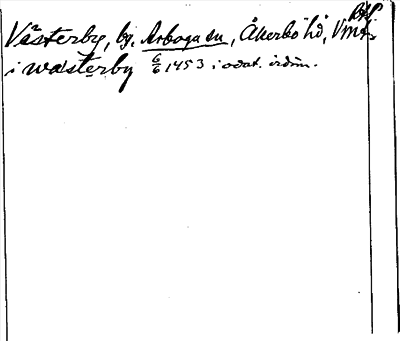 Västerby, by, Arboga sn, Åkerbo hd, Vml.
i wasterby 6/6 1453 i odat.